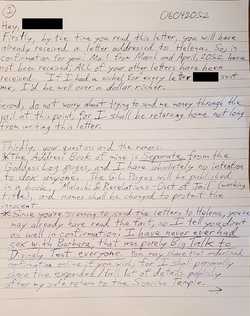 ①
06042052
Hey,
Firstly, by the time you read this letter, you will have
already received a letter addressed to Helena. So, in
confirmation for you: Mail from March and April 2052 have
not been received; ALL of your other letters have been
received. If I had a nickel for every letter sent
me, I'd be well over a dollar richer.
Second, do not worry about trying to send me money through the
jail at this point, for I shall be returning home not long
from writing this letter.
Thirdly, your questions and the rumors:
*The Address Book of mine is Separate from the
Goddess Log pages, and I have absolutely no intention
to dox anyone. The Log Pages will be published
in a book, Malachi & Revelations - Out of Jail (working
title), and names shall be changed to protect the
innocent
*Since you're scanning to send the letters to Helena, you
may already read the fact, so I tell you direct
as well in confirmation: I have never ever had
sex with Barbara, that was purely Big Talk to
Divinely Test everyone. You may share that underlined
confirmation online if you wish, for I shall personally
share the expanded/full lot of details publicly
after my safe return to the Sonichu Temple.